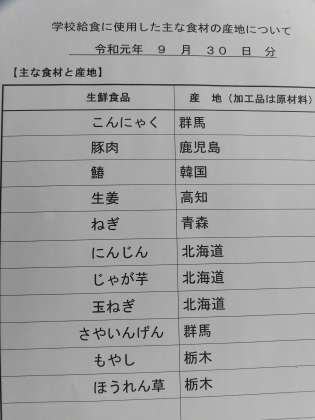 学校給食に使用した主な食材の産地について
令和元年 9 月 30 日 分
【主な食材と産地】
生鮮食品 産 地（加工品は原材料）
こんにゃく 群馬
豚肉 鹿児島
鰆 韓国
生姜 高知
ねぎ 青森
にんじん 北海道
じゃが芋 北海道
玉ねぎ 北海道
さやいんげん 群馬
もやし 栃木
ほうれん草 栃木